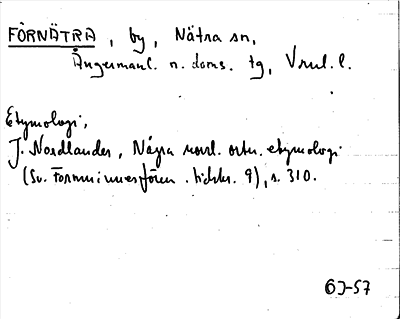 FÖRNÄTRA, by, Nätra sn,
Ångermanl. n. doms. tg, Vnrl. l.
Etymologi,
J. Nordlander, Några norrl. ortn. etymologi
(Sv. Fornminnesfören. tidskr. 9), s. 310.
GJ-57